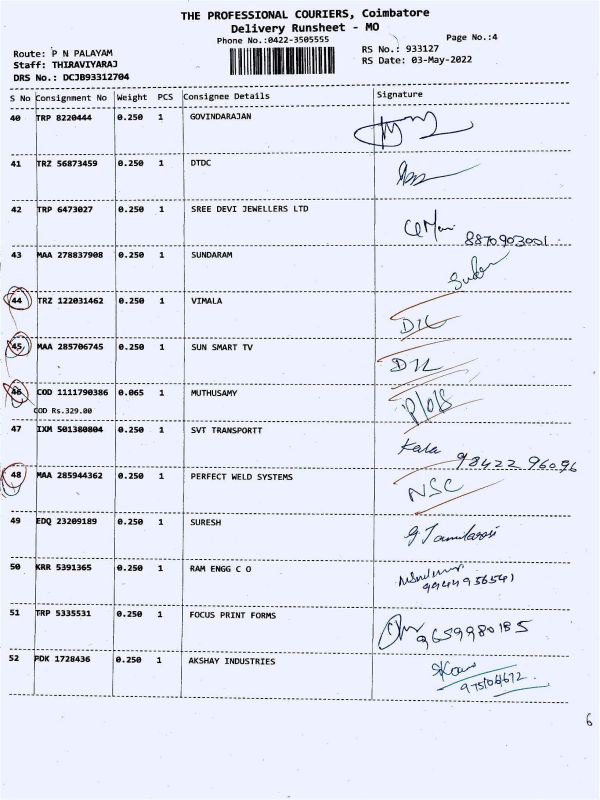 THE PROFESSIONAL COURIERS, Coimbatore
Delivery Runsheet - MO
Phone No.:0422-3505555
Page No.:4
Route: P N PALAYAM
RS No.: 933127
Staff: THIRAVIYARAJ
RS Date: 03-May-2022
DRS No.: DCJB93312704
S No Consignment No Weight PCS Consignee Details Signature
40 TRP 8220444 0.250 1 GOVINDARAJAN
41 TRZ 56873459 0.250 1 DTDC
42 TRP 6473027 0.250 1 SREE DEVI JEWELLERS LTD
8870903001
43 MAA 278837908 0.250 1 SUNDARAM
44 TRZ 122031462 0.250 1 VIMALA
DIL
45 MAA 285706745 0.250 1 SUN SMART TV
DIL
46 COD 1111790386 0.065 1 MUTHUSAMY
COD Rs.329.00
47 IXM 501380804 0.250 1 SVT TRANSPORTT
Kala 98422 96096
48 MAA 285944362 0.250 1 PERFECT WELD SYSTEMS
NSC
49 EDQ 23209189 0.250 1 SURESH
50 KRR 5391365 0.250 1 RAM ENGG C O
9944956541
51 TRP 5335531 0.250 1 FOCUS PRINT FORMS
9659980185
52 PDK 1728436 0.250 1 AKSHAY INDUSTRIES
6